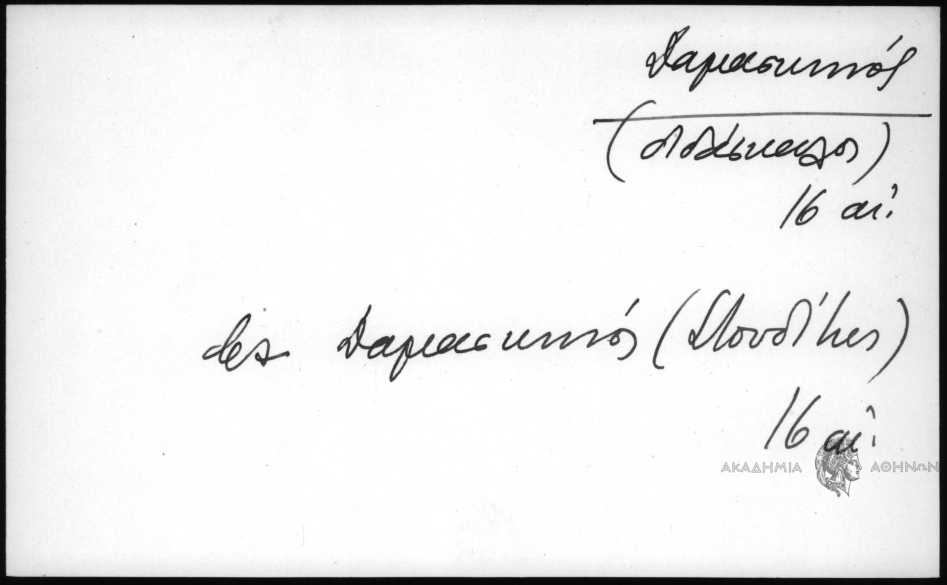 Δαμασκηνός
(διδάσκαλος)
16 αἰ.
βλ. Δαμασκηνός (Στουδίτης)
16 αἰ.
ΑΚΑΔΗΜΙΑ ΑΘΗΝΩΝ